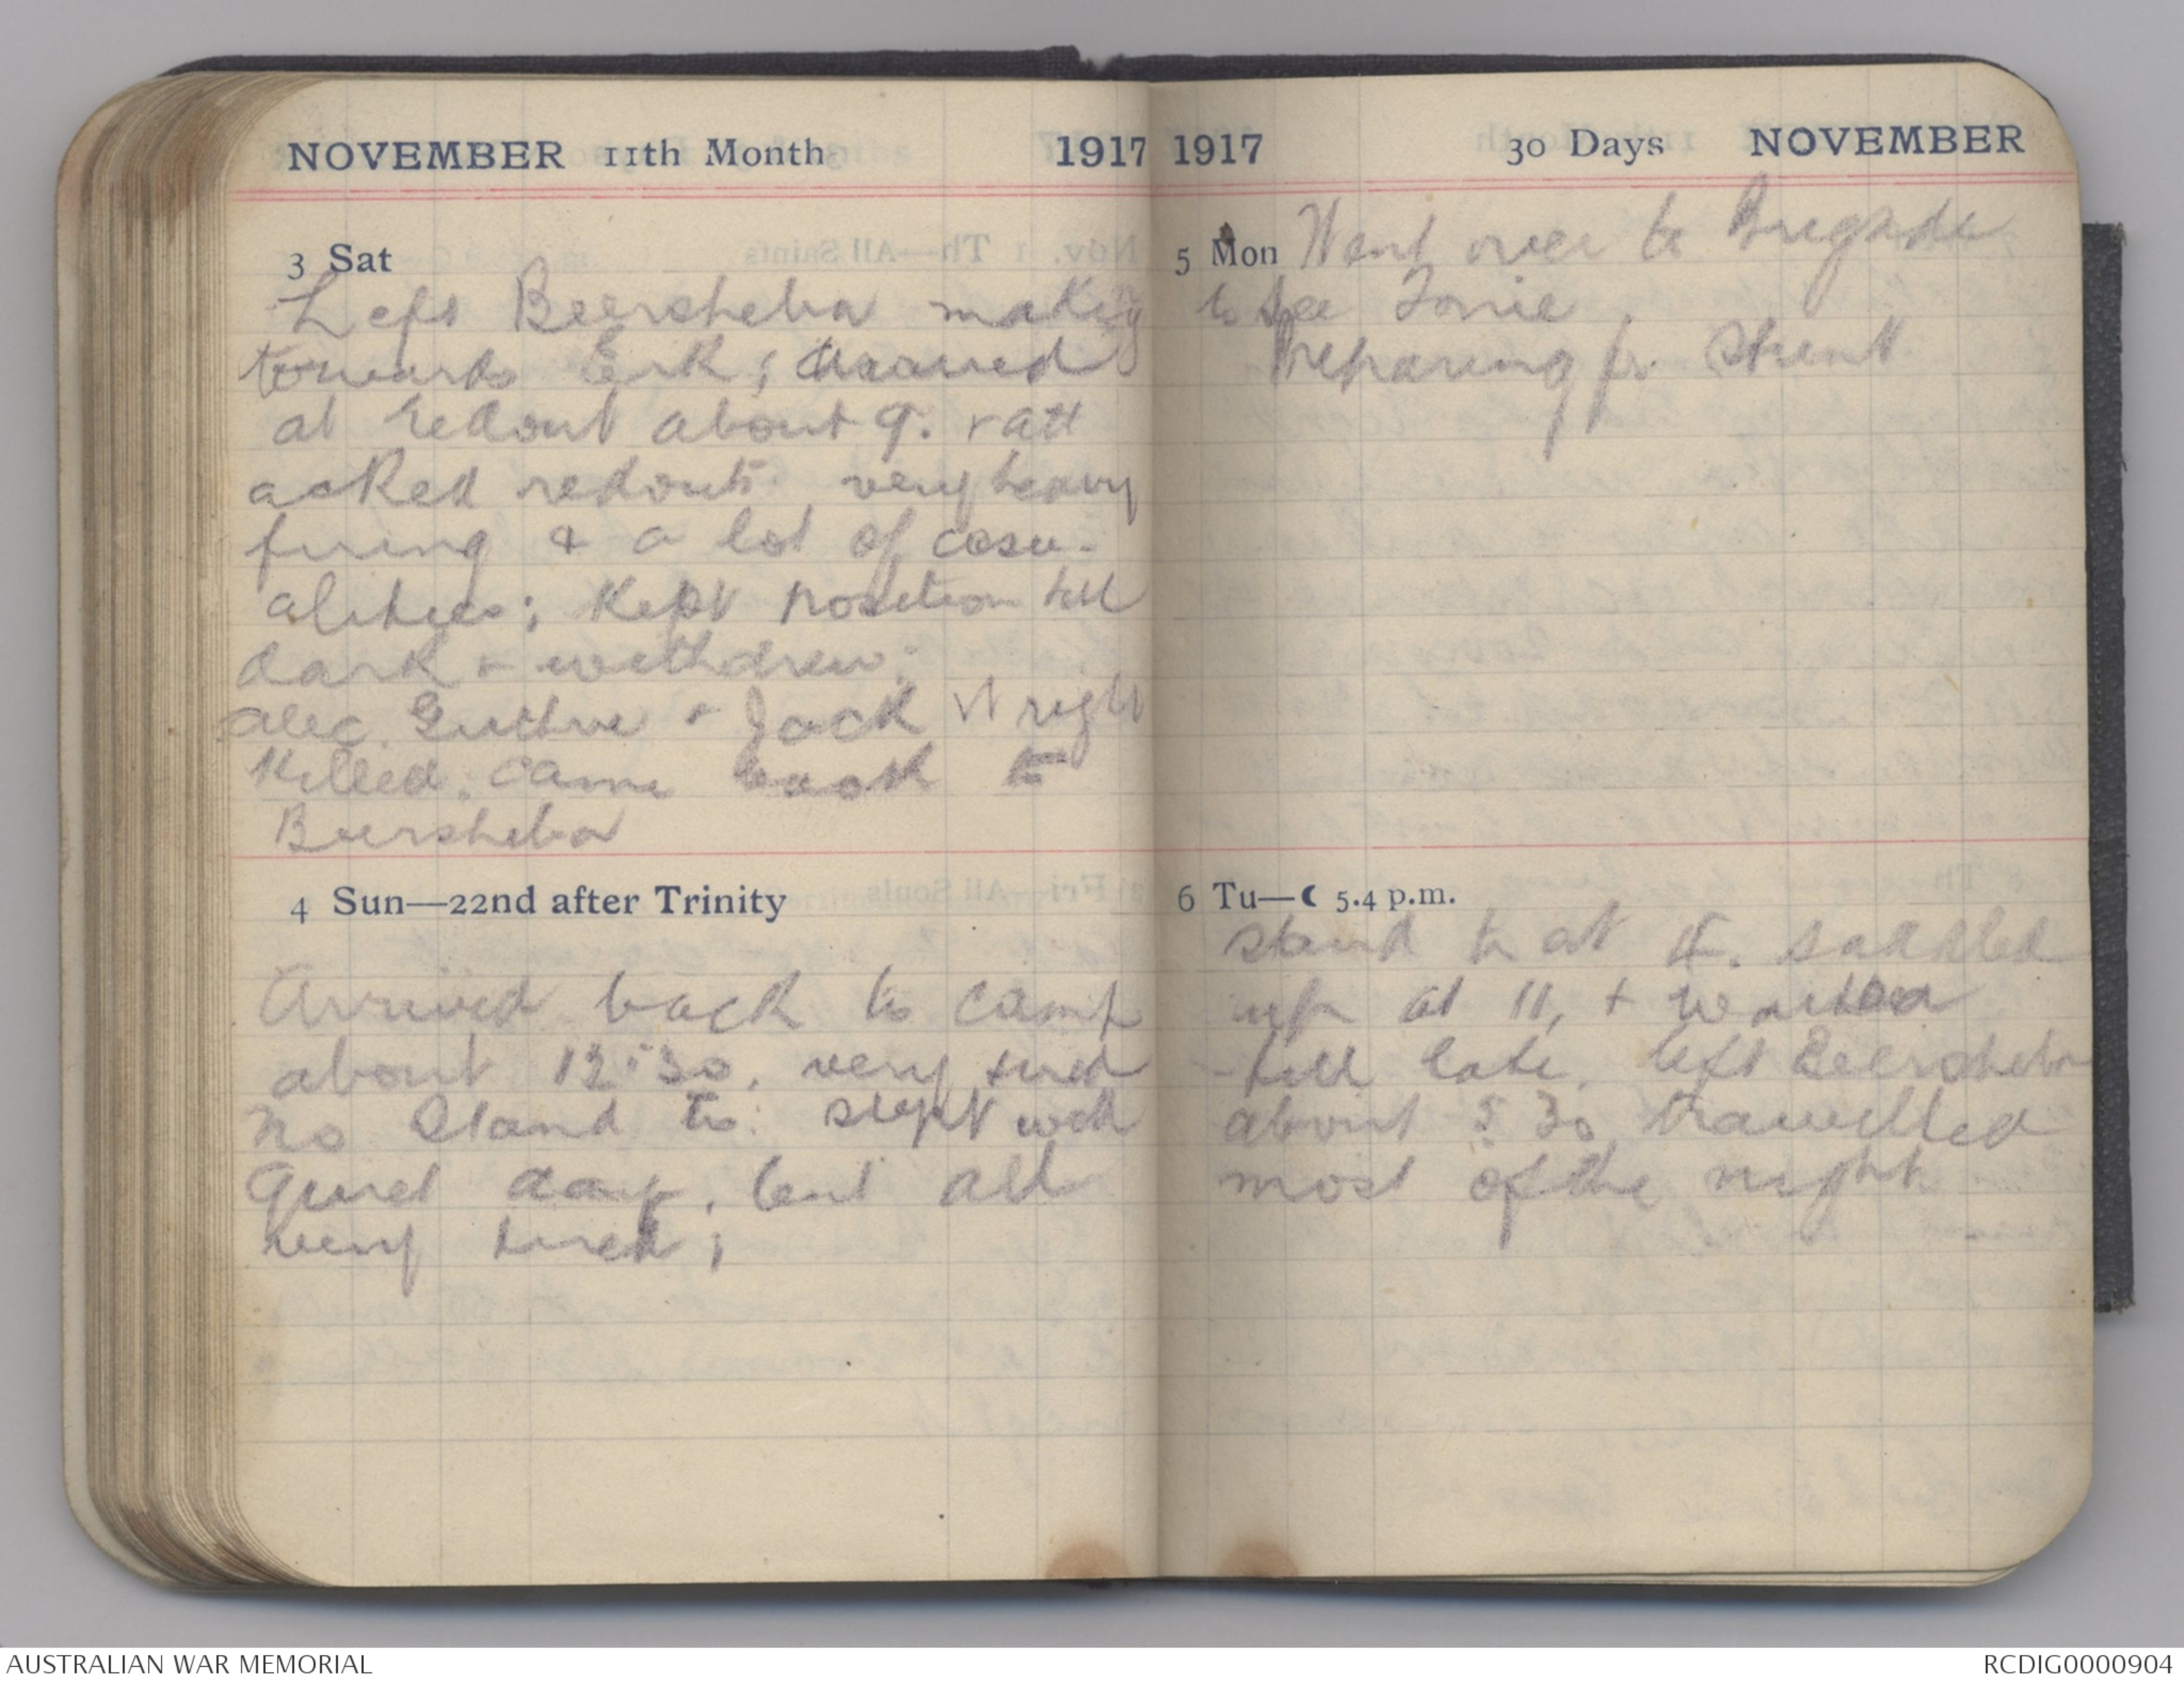 NOVEMBER 11th Month 1917
3 Sat
Left Beersheba making
towards Erk; arrived
at redout about 9. + att
acked redout. very heavy
firing & a lot of casu-
alities; Kept position till
dark + withdrew;
Alec. Guthrie + Jack Wright
Killed. came back to
Beersheba
4 Sun—22nd after Trinity
Arrived back to camp
about 12.30. very tired
no stand to: slept well
quiet day, but all
very tired;
1917 30 Days NOVEMBER
5 Mon Went over to Brigade
to see
Preparing for Stunt
6 Tu—☾ 5.4 p.m.
stand to at 4. saddled
up at 11, + waited
till late. left Beersheba
about 5.30 travelled
most of the night
AUSTRALIAN WAR MEMORIAL RCDIG0000904